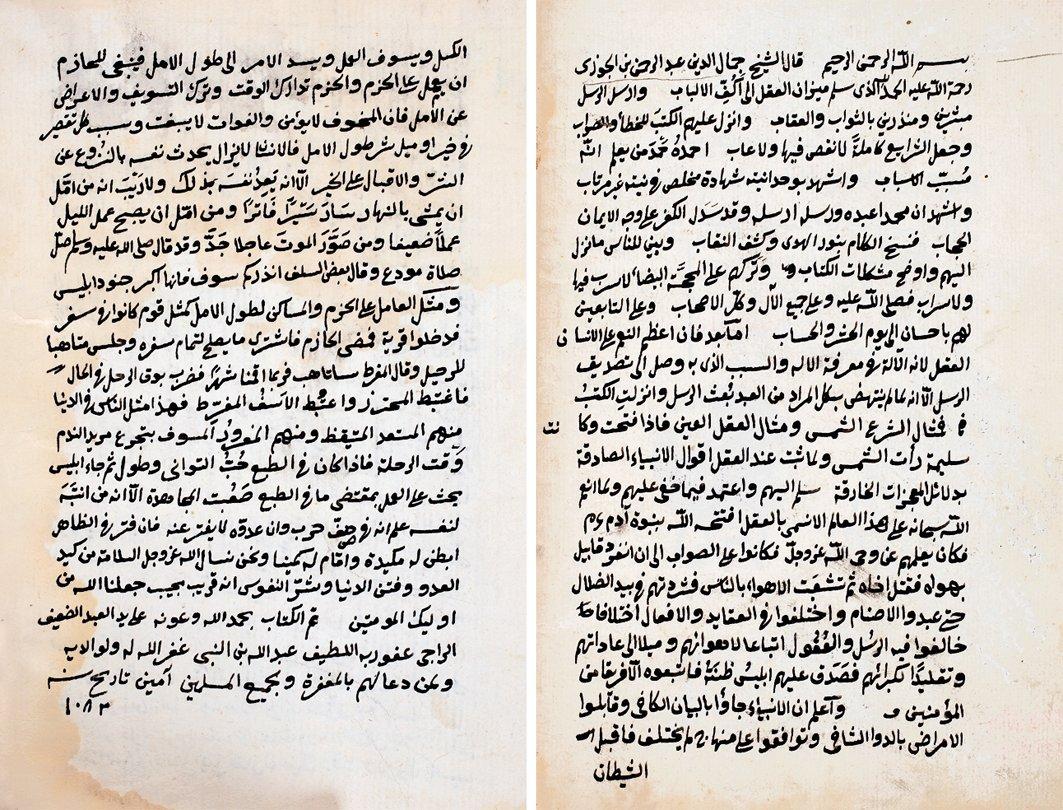 بسم الله الرحمن الرحيم قال الشيخ جمال الدين عبد الرحمن بن الجوزى
رحمة الله عليه الحمد لله الذى سلم ميزان العقل الى اكف الالباب وارسل الرسل
مبشرين ومنذرين بالثواب والعقاب وانزل عليهم الكتب للخطا والصواب
وجعل الشرايع كاملة لا نقص فيها ولا عاب احمده حمد من يعلم انه
مسبب الاسباب واشهد بوحدانيته شهادة مخلص فى نيته غير مرتاب
واشهد ان محمدا عبده ورسوله ارسله وقد سدل الكفر على وجه الايمان
الحجاب فنسخ الظلام بنور الهدى وكشف النقاب وبين للناس ما نزل
اليهم واوضح مشكلات الكتاب وتركهم على المحجة البيضا لا سرب فيها
ولا سراب فصلى الله عليه وعلى جميع الآل وكل الاصحاب وعلى التابعين
لهم باحسان الى يوم الحشر والحساب اما بعد فان اعظم النعم على الانسان
العقل لانه الالة فى معرفة الاله والسبب الذى به وصل الى تصديق
الرسل الا انه لما لم ينهض بكل المراد من العبد بعثت الرسل وانزلت الكتب
فمثال الشرع الشمس ومثال العقل العين فاذا فتحت وكانت
سليمة رأت الشمس ولما ثبت عند العقل اقوال الانبياء الصادقة
بدلائل المعجزات الخارقة سلم اليهم واعتمد فيما خفى عليهم ولما انعم
الله سبحانه على هذا العالم الانسى بالعقل افتتحه الله بنبوة آدم ءم
فكان يعلمهم عن وحى الله عز وجل فكانوا على الصواب الى ان انفرد قابيل
بهواه فقتل اخاه ثم تشعبت الاهواء بالناس فشردتهم فى بيد الضلال
حتى عبدوا الاصنام واختلفوا فى العقايد والافعال اختلافا
خالفوا فيه الرسل والعقول اتباعا لاهوائهم وميلا الى عاداتهم
وتقليدا لكبرائهم فصدق عليهم ابليس ظنه فاتبعوه الا فريقا من
المؤمنين واعلم ان الانبياء جاؤا بالبيان الكافى وقابلوا
الامراض بالدوا الشافى وتوافقوا على منهاج لم يختلف فاقبل
الشيطان
الكسل ويسوف العمل ويسند الامر الى طول الامل فينبغى للحازم
ان يعمل على الحزم والحزم تدارك الوقت وترك التسويف والاعراض
عن الامل فان المخوف لا يؤمن والفوات لا يبعث وسبب كل تقصير
فى خير او ميل شر طول الامل فالانسان لا يزال يحدث نفسه بالنزوع عن
الشر والاقبال على الخير الا انه يعد نفسه بذلك ولا ريب انه من امّل
ان يمشى بالنهار سار سيرا فاترا ومن امّل ان يصبح عمل الليل
عملا ضعيفا ومن صوّر الموت عاجلا جدّ وقد قال صلى الله عليه وسلم صل
صلاة مودع وقال بعض السلف انذركم سوف فانها اكبر جنود ابليس
ومثل العامل على الحزم والساكن لطول الامل كمثل قوم كانوا فى سفر
فدخلوا قرية فمضى الحازم فاشترى ما يصلح لتمام سفره وجلس متاهبا
للرحيل وقال المفرط ساتاهب فربما اقمنا شهرا فضرب بوق الرحل فى الحال
فاغتبط المحترز واغتبط الآسف المفرط فهذا مثل الناس فى الدنيا
منهم المستعد المتيقظ ومنهم المغرور المسوف يتجرع مرير الندم
وقت الرحلة فاذا كان فى الطبع حب التوانى وطول ثم جاء ابليس
يحث على العمل بمقتضى ما فى الطبع صعبت المجاهدة الا انه من انتبه
لنفسه علم انه فى صف حرب وان عدوه لا يفتر عنه فان فتر فى الظاهر
ابطن له مكيدة واقام له كمينا ونحن نسال الله عز وجل السلامة من كيد
العدو وفتن الدنيا وشر النفوس انه قريب مجيب جعلنا الله من
اوليك المومنين تم الكتاب بحمد الله وعونه على يد العبد الضعيف
الراجى عفو ربه اللطيف عبد الله بن النبى غفر الله له ولوالديه
ولمن دعا لهم بالمغفرة ولجميع المسلمين آمين تاريخ سنه
١٠٨٣